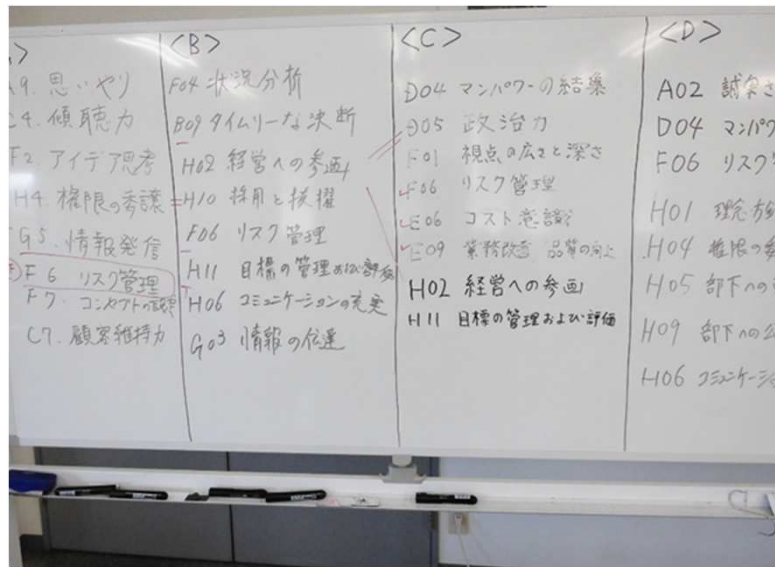 <B>
<C>
<D>
9. 思いやり
4. 傾聴力
F2. アイデア思考
H4. 権限の委譲
G5. 情報発信
F6 リスク管理
F7. コンセプトの
C7. 顧客維持力
F04 状況分析
B09 タイムリーな決断
H02 経営への参画
H10 採用と抜擢
F06 リスク管理
H11 目標の管理および評価
H06 コミュニケーションの充実
G03 情報の伝達
D04 マンパワーの結集
D05 政治力
F01 視点の広さと深さ
F06 リスク管理
E06 コスト意識
E09 業務改善 品質の向上
H02 経営への参画
H11 目標の管理および評価
A02 誠実さ
D04 マンパワ
F06 リスク
H01 理念
H04 権限の
H05 部下への
H09 部下への
H06 コミュニケーシ